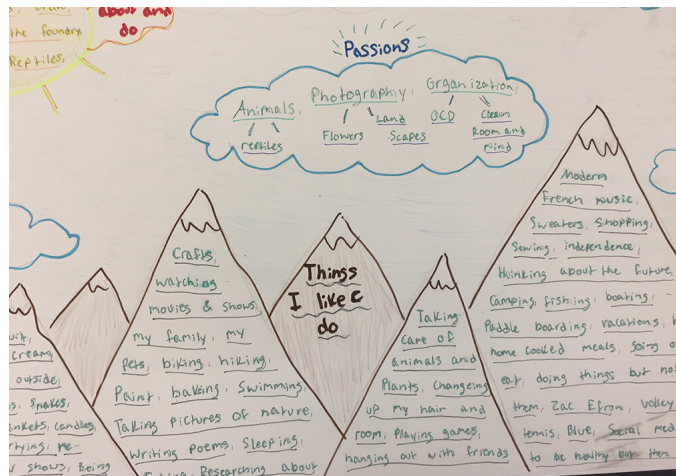 about and
do
the foundry
Reptiles,
Passions
Animals,
reptiles
Photography,
Flowers
Land
Scapes
Organization,
OCD
Clean
Room and
mind
Crafts,
watching
movies & shows,
my family, my
pets, biking, hiking,
Paint, baking, Swimming,
Taking pictures of nature,
Writing poems, Sleeping,
Researching about
Things
I like
do
Taking
care of
animals and
Plants, Changing
up my hair and
room, Playing games,
hanging out with friends
Modern
French music,
Sweaters, Shopping,
Sewing, independence,
thinking about the future,
Camping, fishing, boating,
Paddle boarding, vacations,
home cooked meals, going
eat, doing things but
them, Zac Efron, Volley
tennis, Blue, Social
to be healthy but them
cream,
outside,
Snakes,
candles,
shows, Being